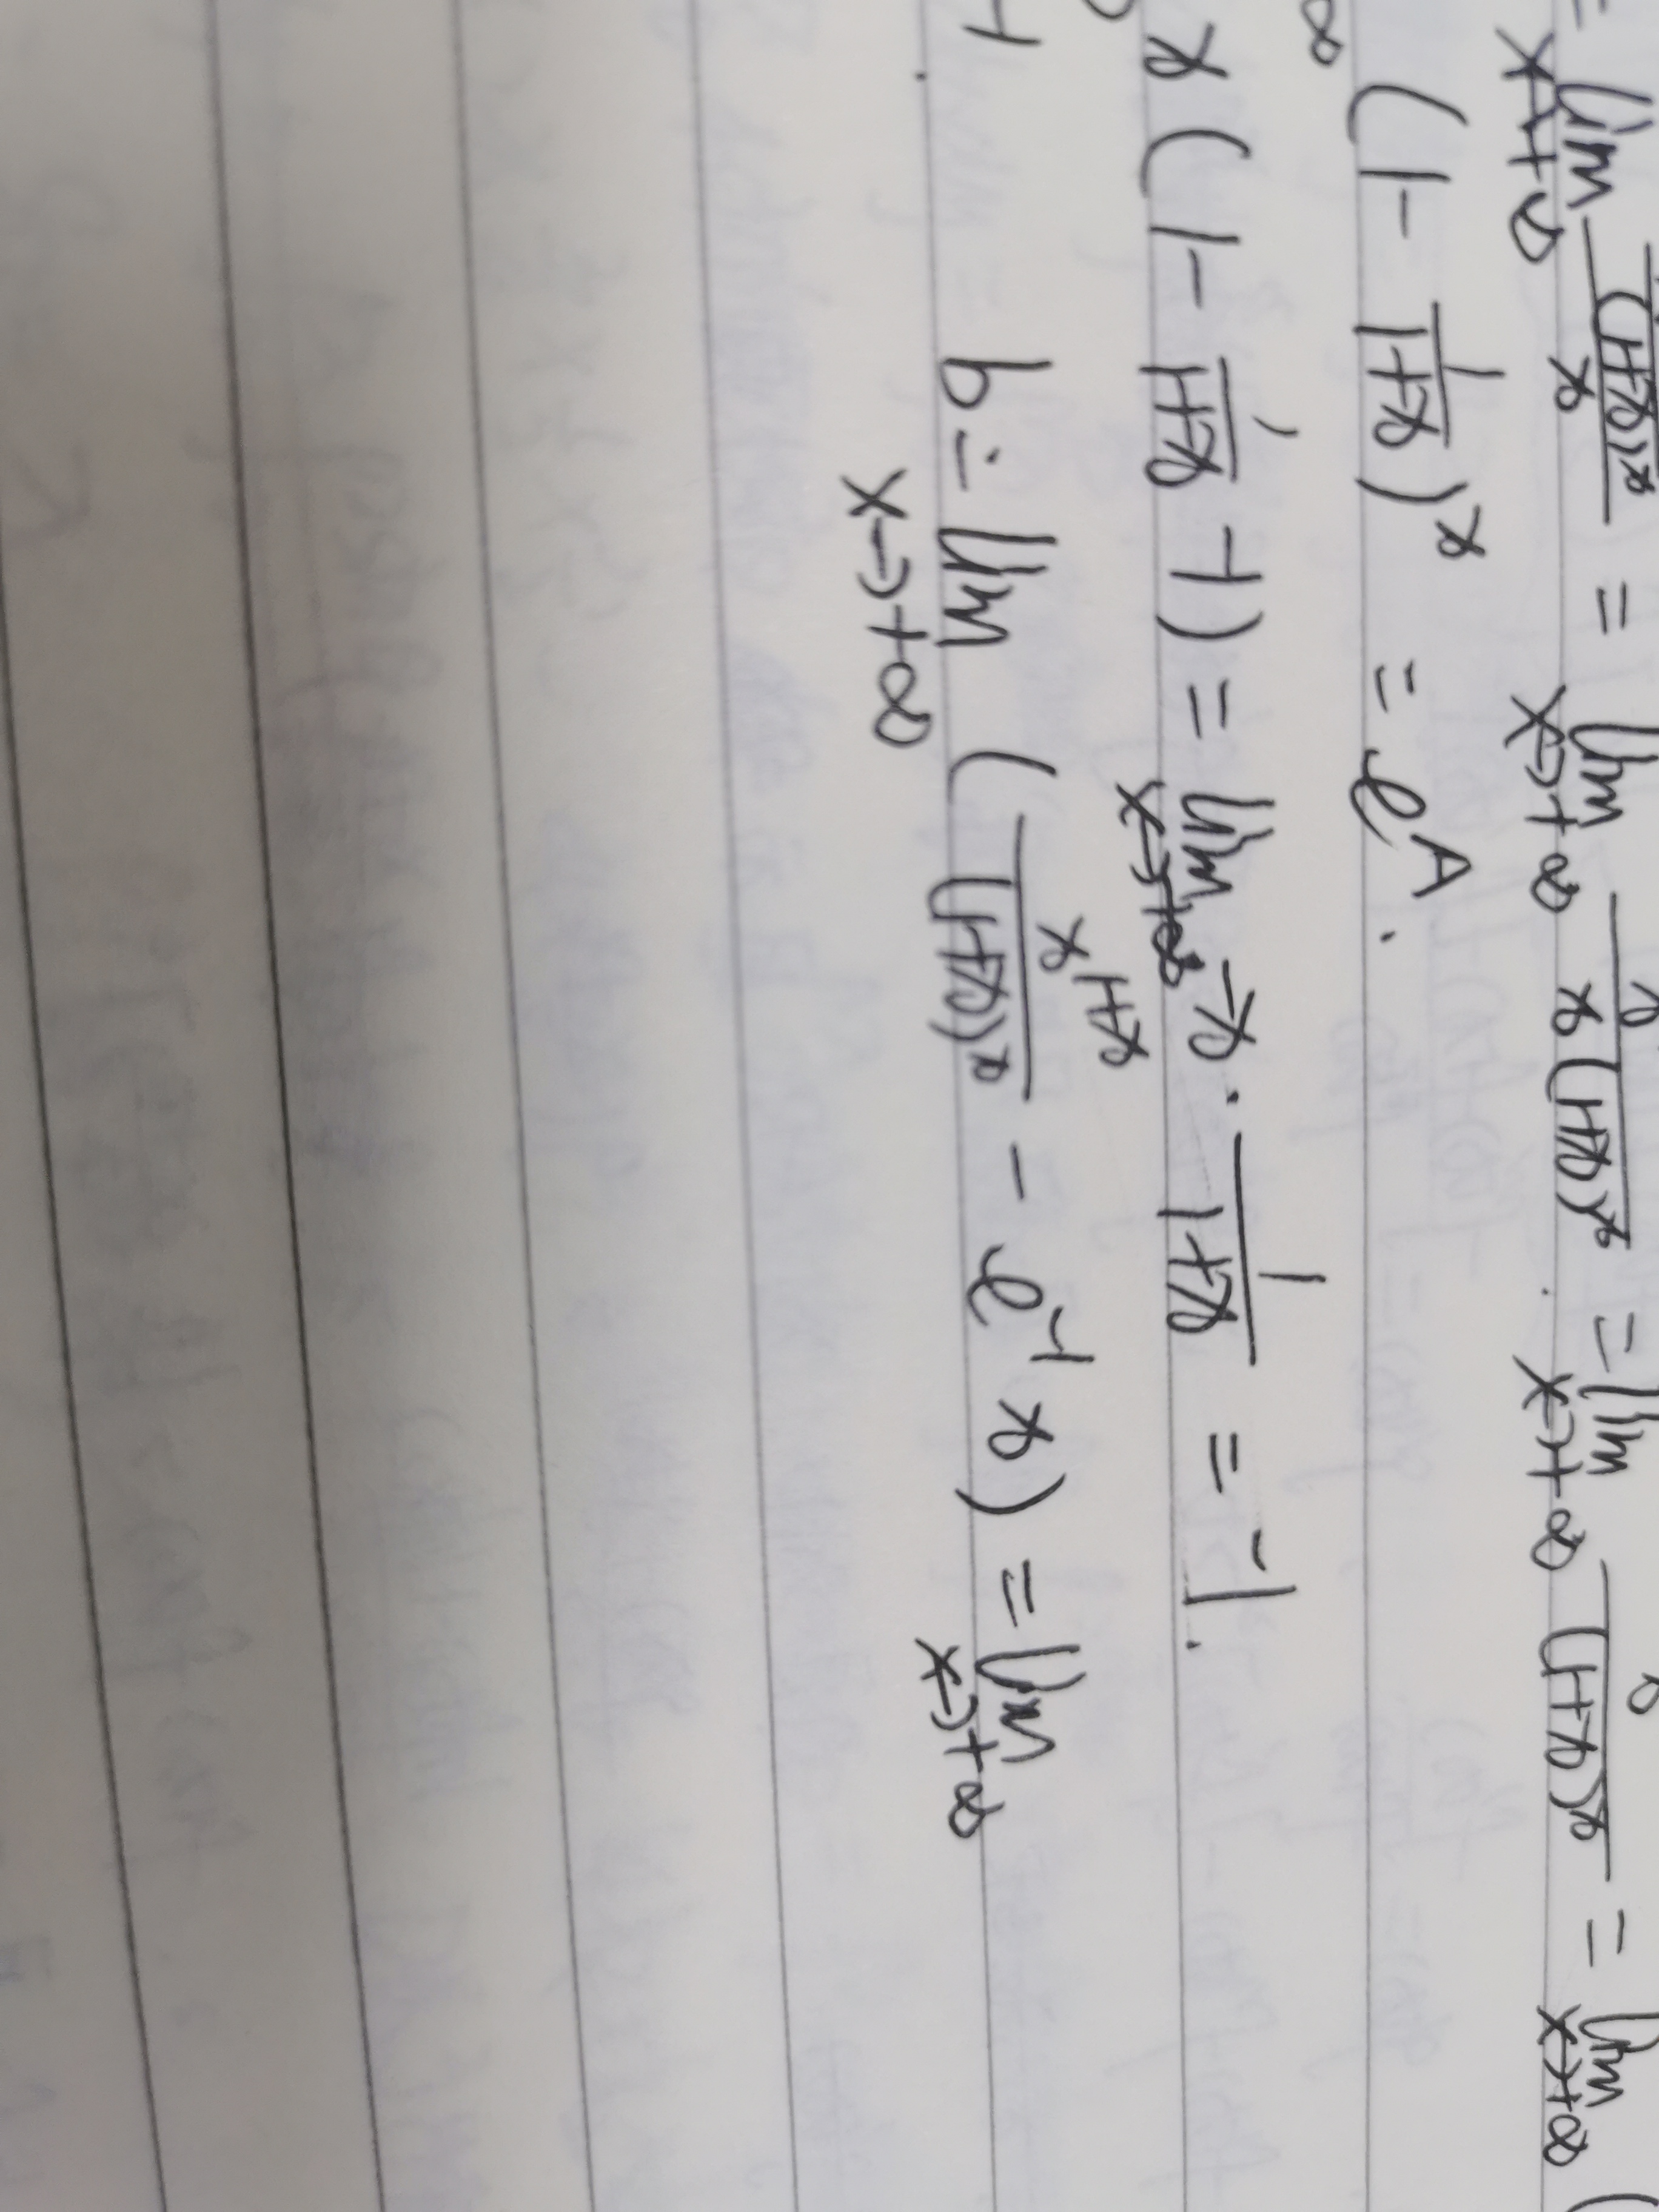 = lim x→+∞ (1+x)^x / x = lim x→+∞ / x(1+x)^x = lim x→+∞ / (1+x)^x = lim x→+∞ (
∞ (1 - 1/(1+x))^x = e^A.
x(1 - 1/(1+x) - 1) = lim x→+∞ -x · 1/(1+x) = -1.
-1. b = lim x→+∞ (x^(x+1)/(1+x)^x - e^-1 x) = lim x→+∞